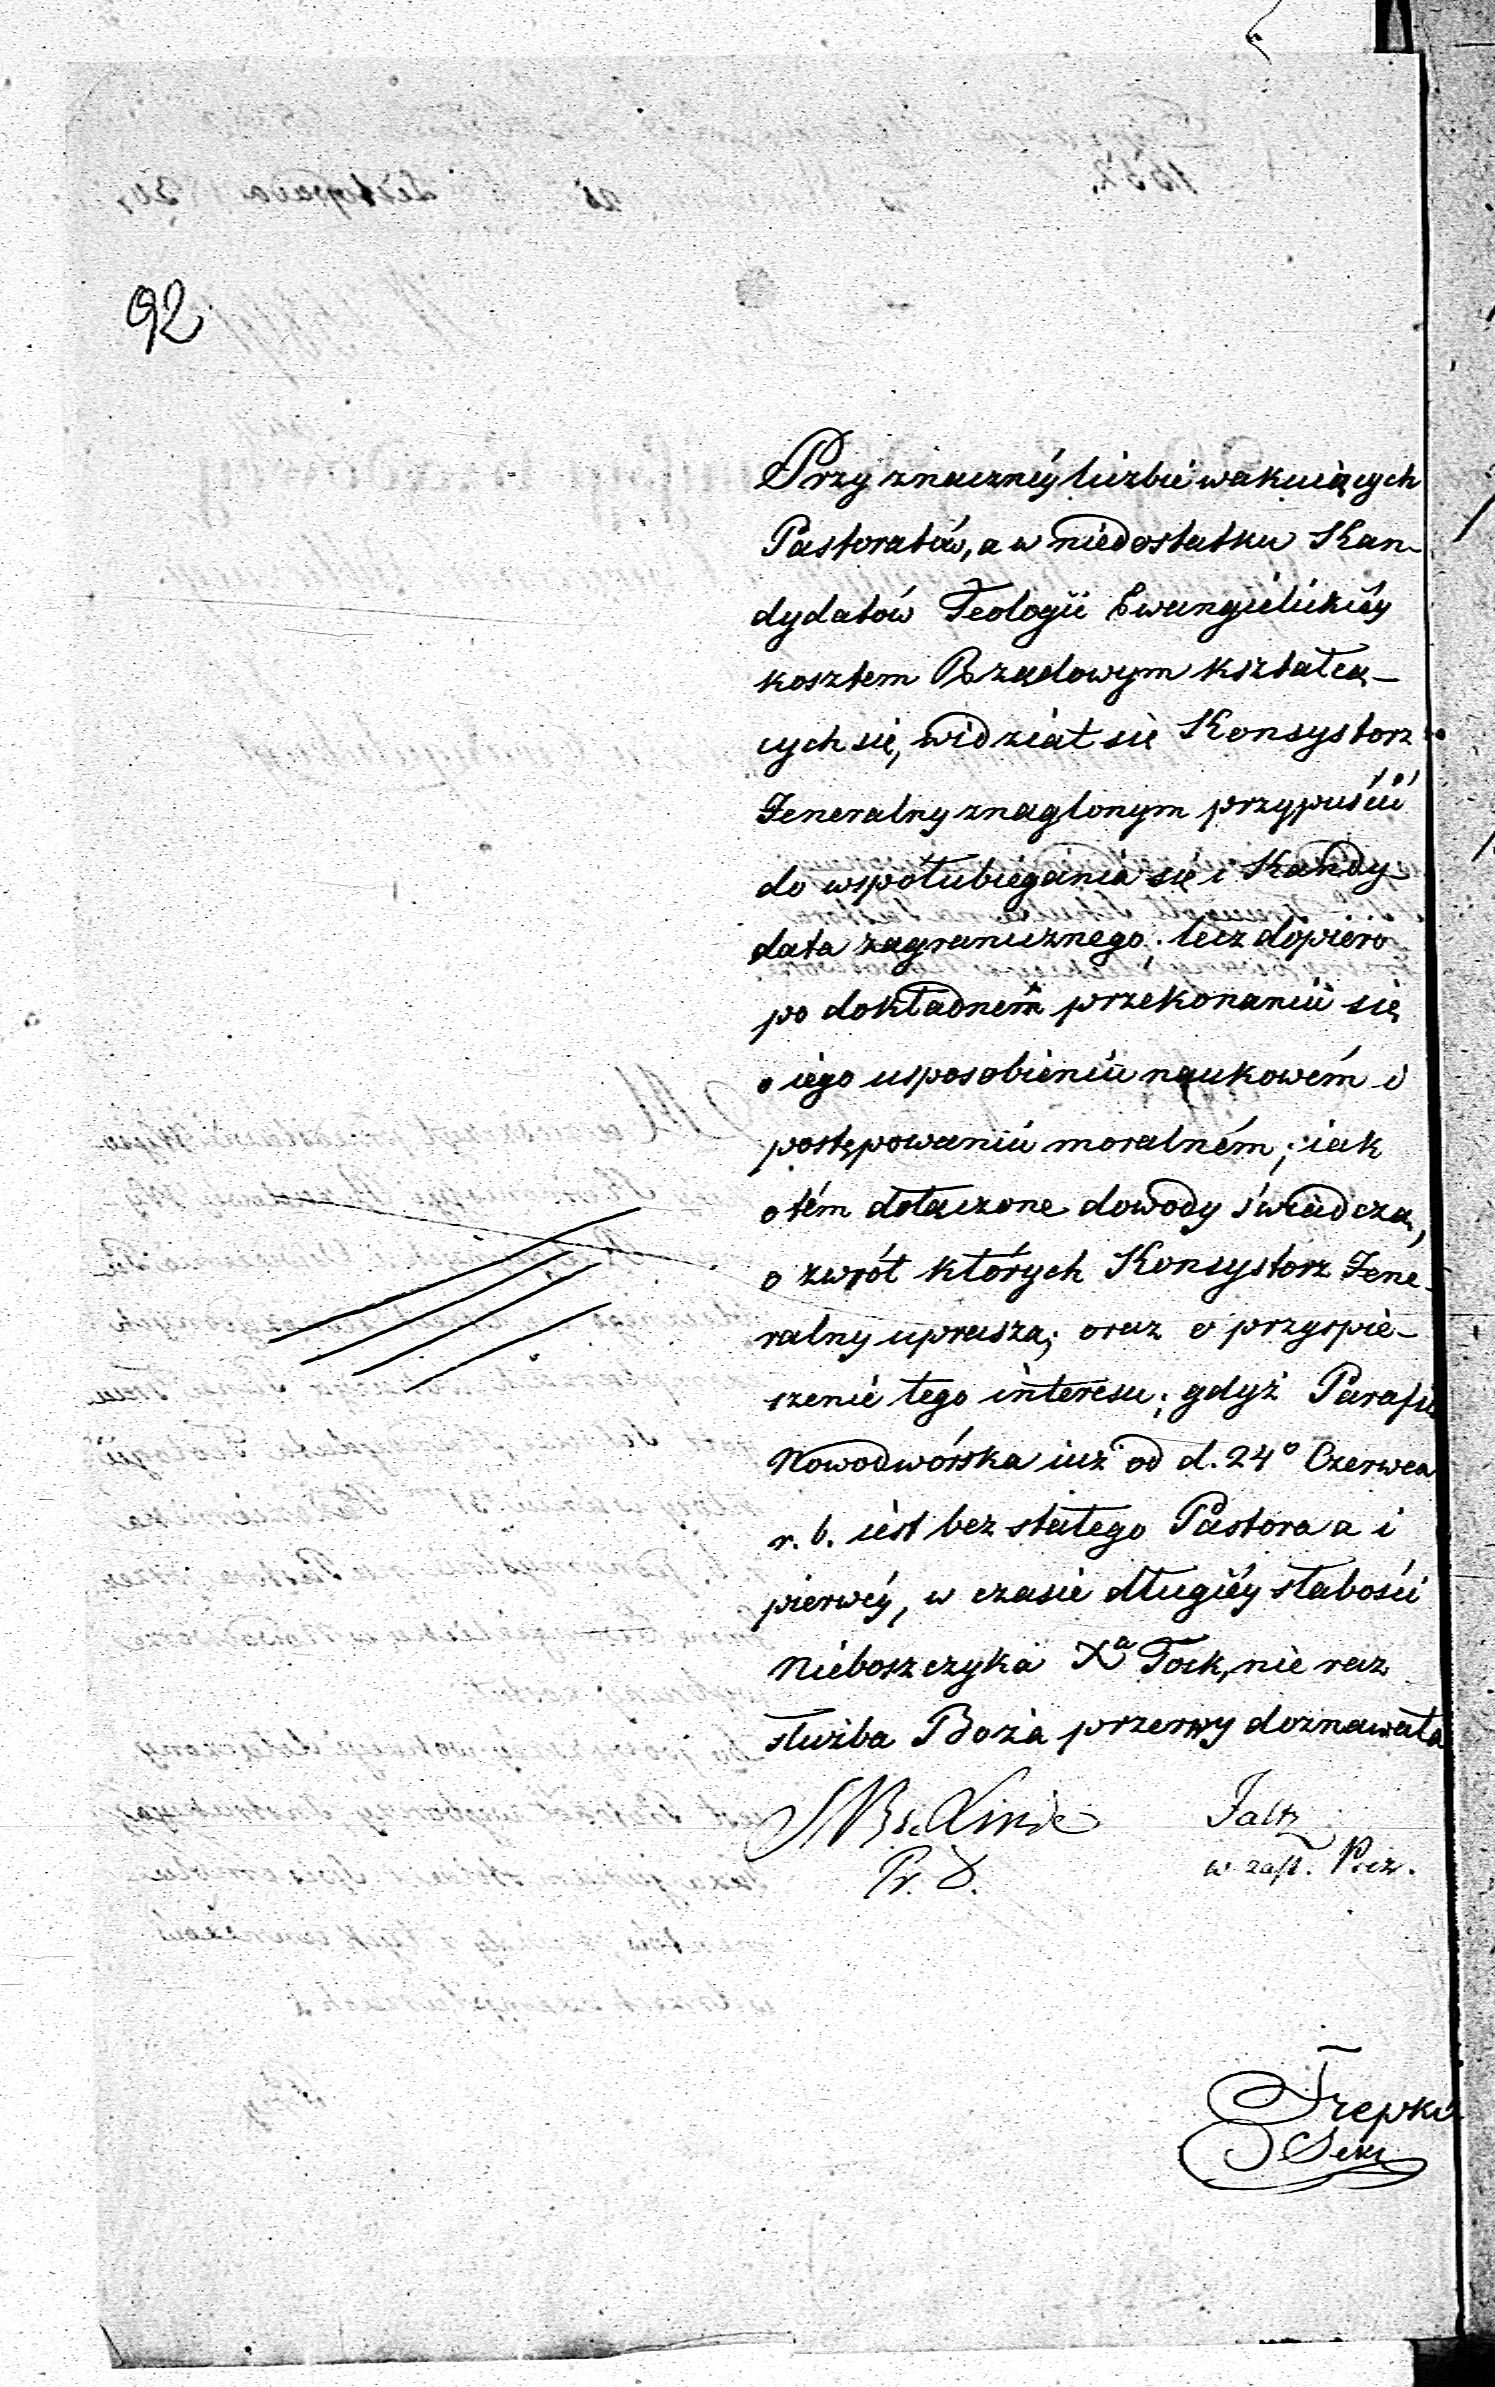 92
Przy znacznéy liczbie wakuiących
Pastoratów, a w niedostatku Kan-
dydatów Teologii Ewangielickiéy
kosztem Rządowym kształcą-
cych się, widział się Konsystorz
Jeneralny znaglonym przypuścić
do współubiegania się i Kandy-
data zagranicznego; lecz dopiero
po dokładném przekonaniu się
o iego usposobieniu naukowém i
postępowaniu moralném; iak
o tém dołączone dowody świadczą,
o zwrót których Konsystorz Jene-
ralny uprasza; oraz o przyspie-
szenie tego interesu; gdyż Parafia
Nowodwórska iuż od d. 24º Czerwca
r. b. iest bez stałego Pastora a i
pierwéy, w czasie długiéy słabości
Nieboszczyka Xa Tock, nie raz
służba Boża przerwy doznawała
Linde
Pr. D.
w zast. Prez.
Trepka
Sekr